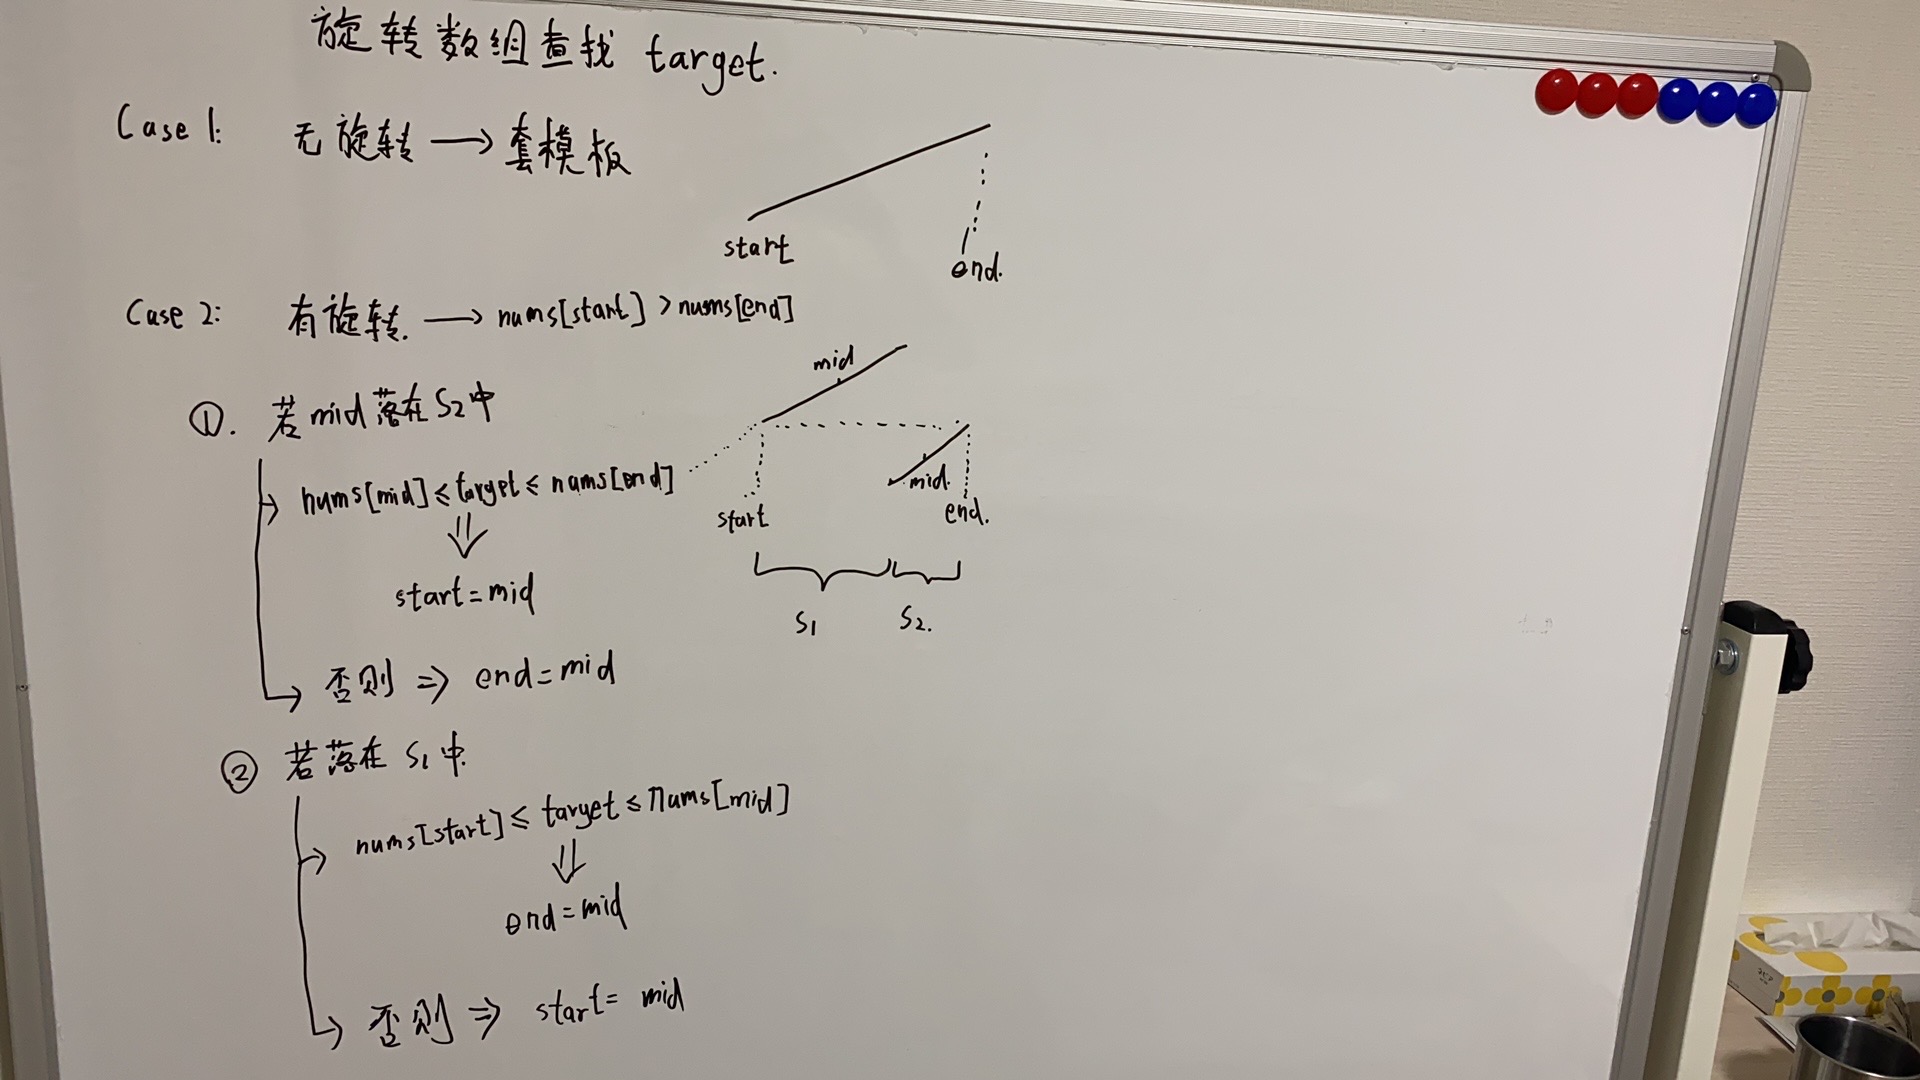 旋转数组查找 target.
Case 1: 无旋转 → 套模板
start
end.
Case 2: 有旋转. → nums[start] > nums[end]
mid
①. 若mid落在S2中
nums[mid] ≤ target ≤ nums[end]
mid.
start
end.
⇓
start = mid
S1 S2.
否则 ⇒ end = mid
② 若落在 S1 中.
nums[start] ≤ target ≤ nums[mid]
⇓
end = mid
否则 ⇒ start = mid